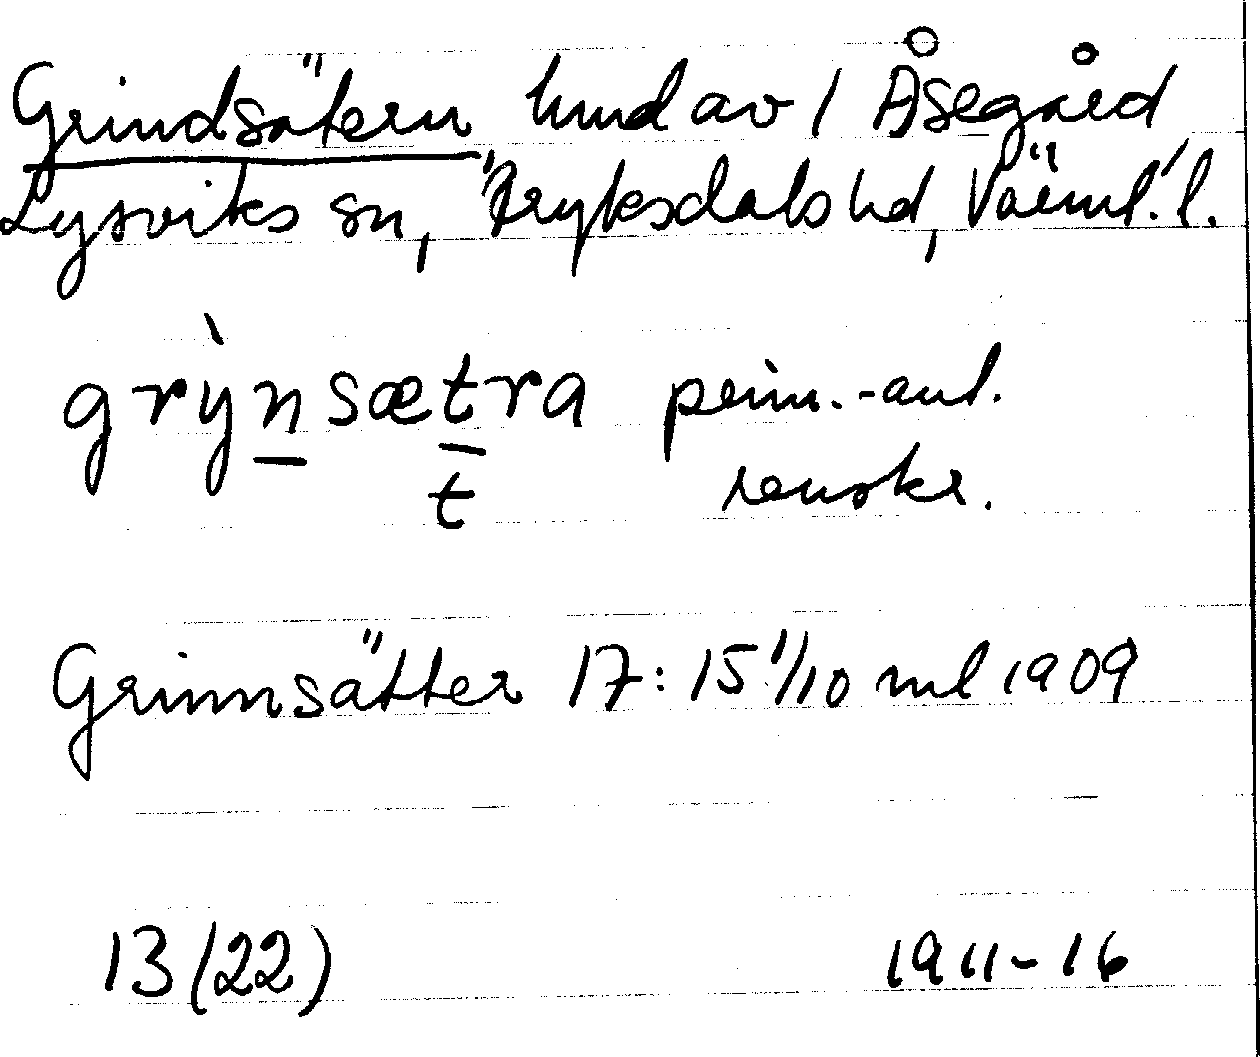 Grindsätern hmd av 1 Åsegård
Lysviks sn, Fryksdals hd, Värml. l.
grỳnsætra prim.-aut.
t renskr.
Grinnsätter 17:15 1/10 ml 1909
13 (22) 1911-16